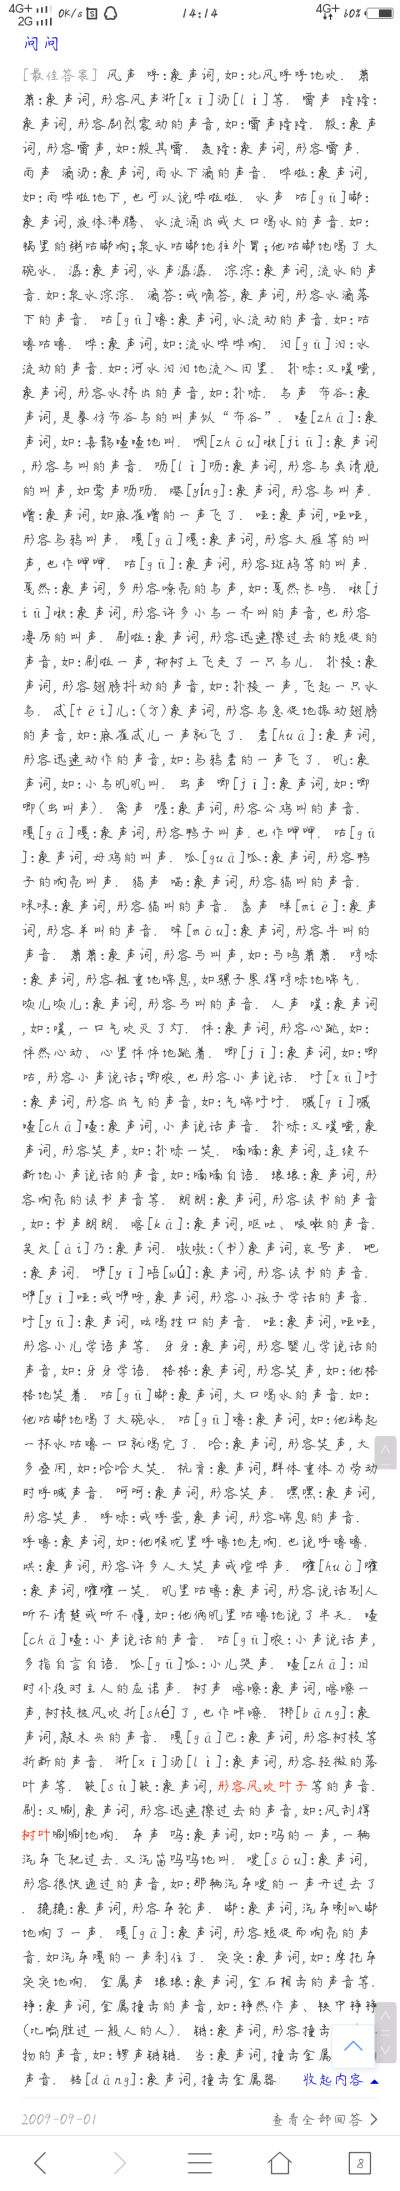 4G+ 2G 0K/s 14:14 4G+ 60%
问问
[最佳答案] 风声 呼:象声词,如:北风呼呼地吹. 萧
萧:象声词,形容风声淅[xī]沥[lì]等. 雷声 隆隆:
象声词,形容剧烈震动的声音,如:雷声隆隆. 殷:象声
词,形容雷声,如:殷其雷. 轰隆:象声词,形容雷声.
雨声 滴沥:象声词,雨水下滴的声音. 哗啦:象声词,
如:雨哗啦地下,也可以说哗啦啦. 水声 咕[gū]嘟:
象声词,液体沸腾、水流涌出或大口喝水的声音.如:
锅里的粥咕嘟响;泉水咕嘟地往外冒;他咕嘟地喝了大
碗水. 潺:象声词,水声潺潺. 淙淙:象声词,流水的声
音.如:泉水淙淙. 滴答:或嘀答,象声词,形容水滴落
下的声音. 咕[gū]噜:象声词,水流动的声音.如:咕
噜咕噜. 哗:象声词,如:流水哗哗响. 汩[gǔ]汩:水
流动的声音.如:河水汩汩地流入田里. 扑哧:又噗嗤,
象声词,形容水挤出的声音,如:扑哧. 鸟声 布谷:象
声词,是摹仿布谷鸟的叫声似“布谷”. 喳[zhā]:象
声词,如:喜鹊喳喳地叫. 啁[zhōu]啾[jiū]:象声词
,形容鸟叫的声音. 呖[lì]呖:象声词,形容鸟类清脆
的叫声,如莺声呖呖. 嘤[yīng]:象声词,形容鸟叫声.
噌:象声词,如麻雀噌的一声飞了. 哑:象声词,哑哑,
形容乌鸦叫声. 嘎[gā]嘎:象声词,形容大雁等的叫
声,也作呷呷. 咕[gū]:象声词,形容斑鸠等的叫声.
戛然:象声词,多形容嘹亮的鸟声,如:戛然长鸣. 啾[j
iū]啾:象声词,形容许多小鸟一齐叫的声音,也形容
凄厉的叫声. 刷啦:象声词,形容迅速擦过去的短促的
声音,如:刷啦一声,柳树上飞走了一只鸟儿. 扑棱:象
声词,形容翅膀抖动的声音,如:扑棱一声,飞起一只水
鸟. 忒[tēi]儿:(方)象声词,形容鸟急促地振动翅膀
的声音,如:麻雀忒儿一声就飞了. 砉[huā]:象声词,
形容迅速动作的声音,如:乌鸦砉的一声飞了. 叽:象
声词,如:小鸟叽叽叫. 虫声 唧[jī]:象声词,如:唧
唧(虫叫声). 禽声 喔:象声词,形容公鸡叫的声音.
嘎[gā]嘎:象声词,形容鸭子叫声.也作呷呷. 咕[gū
]:象声词,母鸡的叫声. 呱[guā]呱:象声词,形容鸭
子的响亮叫声. 猫声 喵:象声词,形容猫叫的声音.
咪咪:象声词,形容猫叫的声音. 畜声 咩[miē]:象声
词,形容羊叫的声音. 哞[mōu]:象声词,形容牛叫的
声音. 萧萧:象声词,形容马叫声,如:马鸣萧萧. 哼哧
:象声词,形容粗重地喘息,如骡子累得哼哧地喘气.
咴儿咴儿:象声词,形容马叫的声音. 人声 噗:象声词
,如:噗,一口气吹灭了灯. 怦:象声词,形容心跳,如:
怦然心动、心里怦怦地跳着. 唧[jī]:象声词,如:唧
咕,形容小声说话;唧哝,也形容小声说话. 吁[xū]吁
:象声词,形容出气的声音,如:气喘吁吁. 嘁[qī]嘁
喳[chā]喳:象声词,小声说话声音. 扑哧:又噗嗤,象
声词,形容笑声,如:扑哧一笑. 喃喃:象声词,连续不
断地小声说话的声音,如:喃喃自语. 琅琅:象声词,形
容响亮的读书声音等. 朗朗:象声词,形容读书的声音
,如:书声朗朗. 喀[kā]:象声词,呕吐、咳嗽的声音.
矣欠[ǎi]乃:象声词. 嗷嗷:(书)象声词,哀号声. 吧
:象声词. 咿[yī]唔[wú]:象声词,形容读书的声音.
咿[yī]哑:或咿呀,象声词,形容小孩子学话的声音.
吁[yū]:象声词,吆喝牲口的声音. 哑:象声词,哑哑,
形容小儿学语声等. 牙牙:象声词,形容婴儿学说话的
声音,如:牙牙学语. 格格:象声词,形容笑声,如:他格
格地笑着. 咕[gū]嘟:象声词,大口喝水的声音.如:
他咕嘟地喝了大碗水. 咕[gū]噜:象声词,如:他端起
一杯水咕噜一口就喝完了. 哈:象声词,形容笑声,大
多叠用,如:哈哈大笑. 杭育:象声词,群体重体力劳动
时呼喊声音. 呵呵:象声词,形容笑声. 嘿嘿:象声词,
形容笑声. 呼哧:或呼蚩,象声词,形容喘息的声音.
呼噜:象声词,如:他喉咙里呼噜地走响.也说呼噜噜.
哄:象声词,形容许多人大笑声或喧哗声. 嚯[huò]嚯
:象声词,嚯嚯一笑. 叽里咕噜:象声词,形容说话别人
听不清楚或听不懂,如:他俩叽里咕噜地说了半天. 喳
[chā]喳:小声说话的声音. 咕[gū]哝:小声说话声,
多指自言自语. 呱[gū]呱:小儿哭声. 喳[zhā]:旧
时仆役对主人的应诺声. 树声 喀嚓:象声词,喀嚓一
声,树枝被风吹折[shé]了,也作咔嚓. 梆[bāng]:象
声词,敲木头的声音. 嘎[gā]巴:象声词,形容树枝等
折断的声音. 淅[xī]沥[lì]:象声词,形容轻微的落
叶声等. 簌[sù]簌:象声词,形容风吹叶子等的声音.
刷:又唰,象声词,形容迅速擦过去的声音,如:风刮得
树叶唰唰地响. 车声 呜:象声词,如:呜的一声,一辆
汽车飞驰过去.又汽笛呜呜地叫. 嗖[sōu]:象声词,
形容很快通过的声音,如:那辆汽车嗖的一声开过去了
. 辘辘:象声词,形容车轮声. 嘟:象声词,汽车喇叭嘟
地响了一声. 嘎[gā]:象声词,形容短促而响亮的声
音.如汽车嘎的一声刹住了. 突突:象声词,如:摩托车
突突地响. 金属声 琅琅:象声词,金石相击的声音等.
铮:象声词,金属撞击的声音,如:铮然作声、铁中铮铮
(比喻胜过一般人的人). 锵:象声词,形容撞击
物的声音,如:锣声锵锵. 当:象声词,撞击金属
声音. 铛[dāng]:象声词,撞击金属器 收起内容
2009-09-01 查看全部回答
8